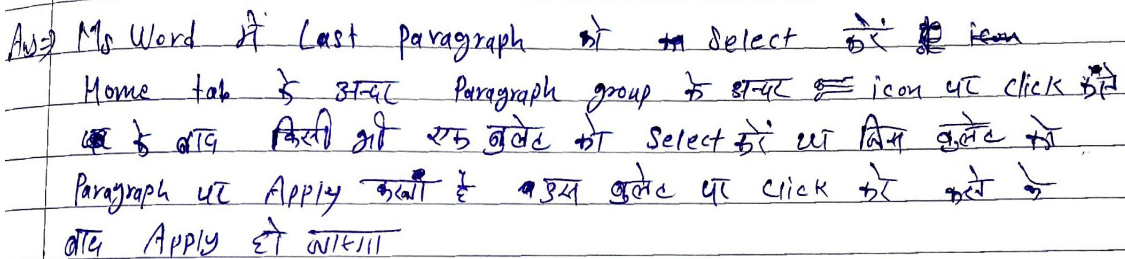 Ans⇒ Ms Word में Last Paragraph को Select करें
Home tab के अन्दर Paragraph group के अन्दर icon पर click करने
के बाद किसी भी एक बुलेट को Select करें या जिस बुलेट को
Paragraph पर Apply करनी है उस बुलेट पर click करे करने के
बाद Apply हो जाएगा